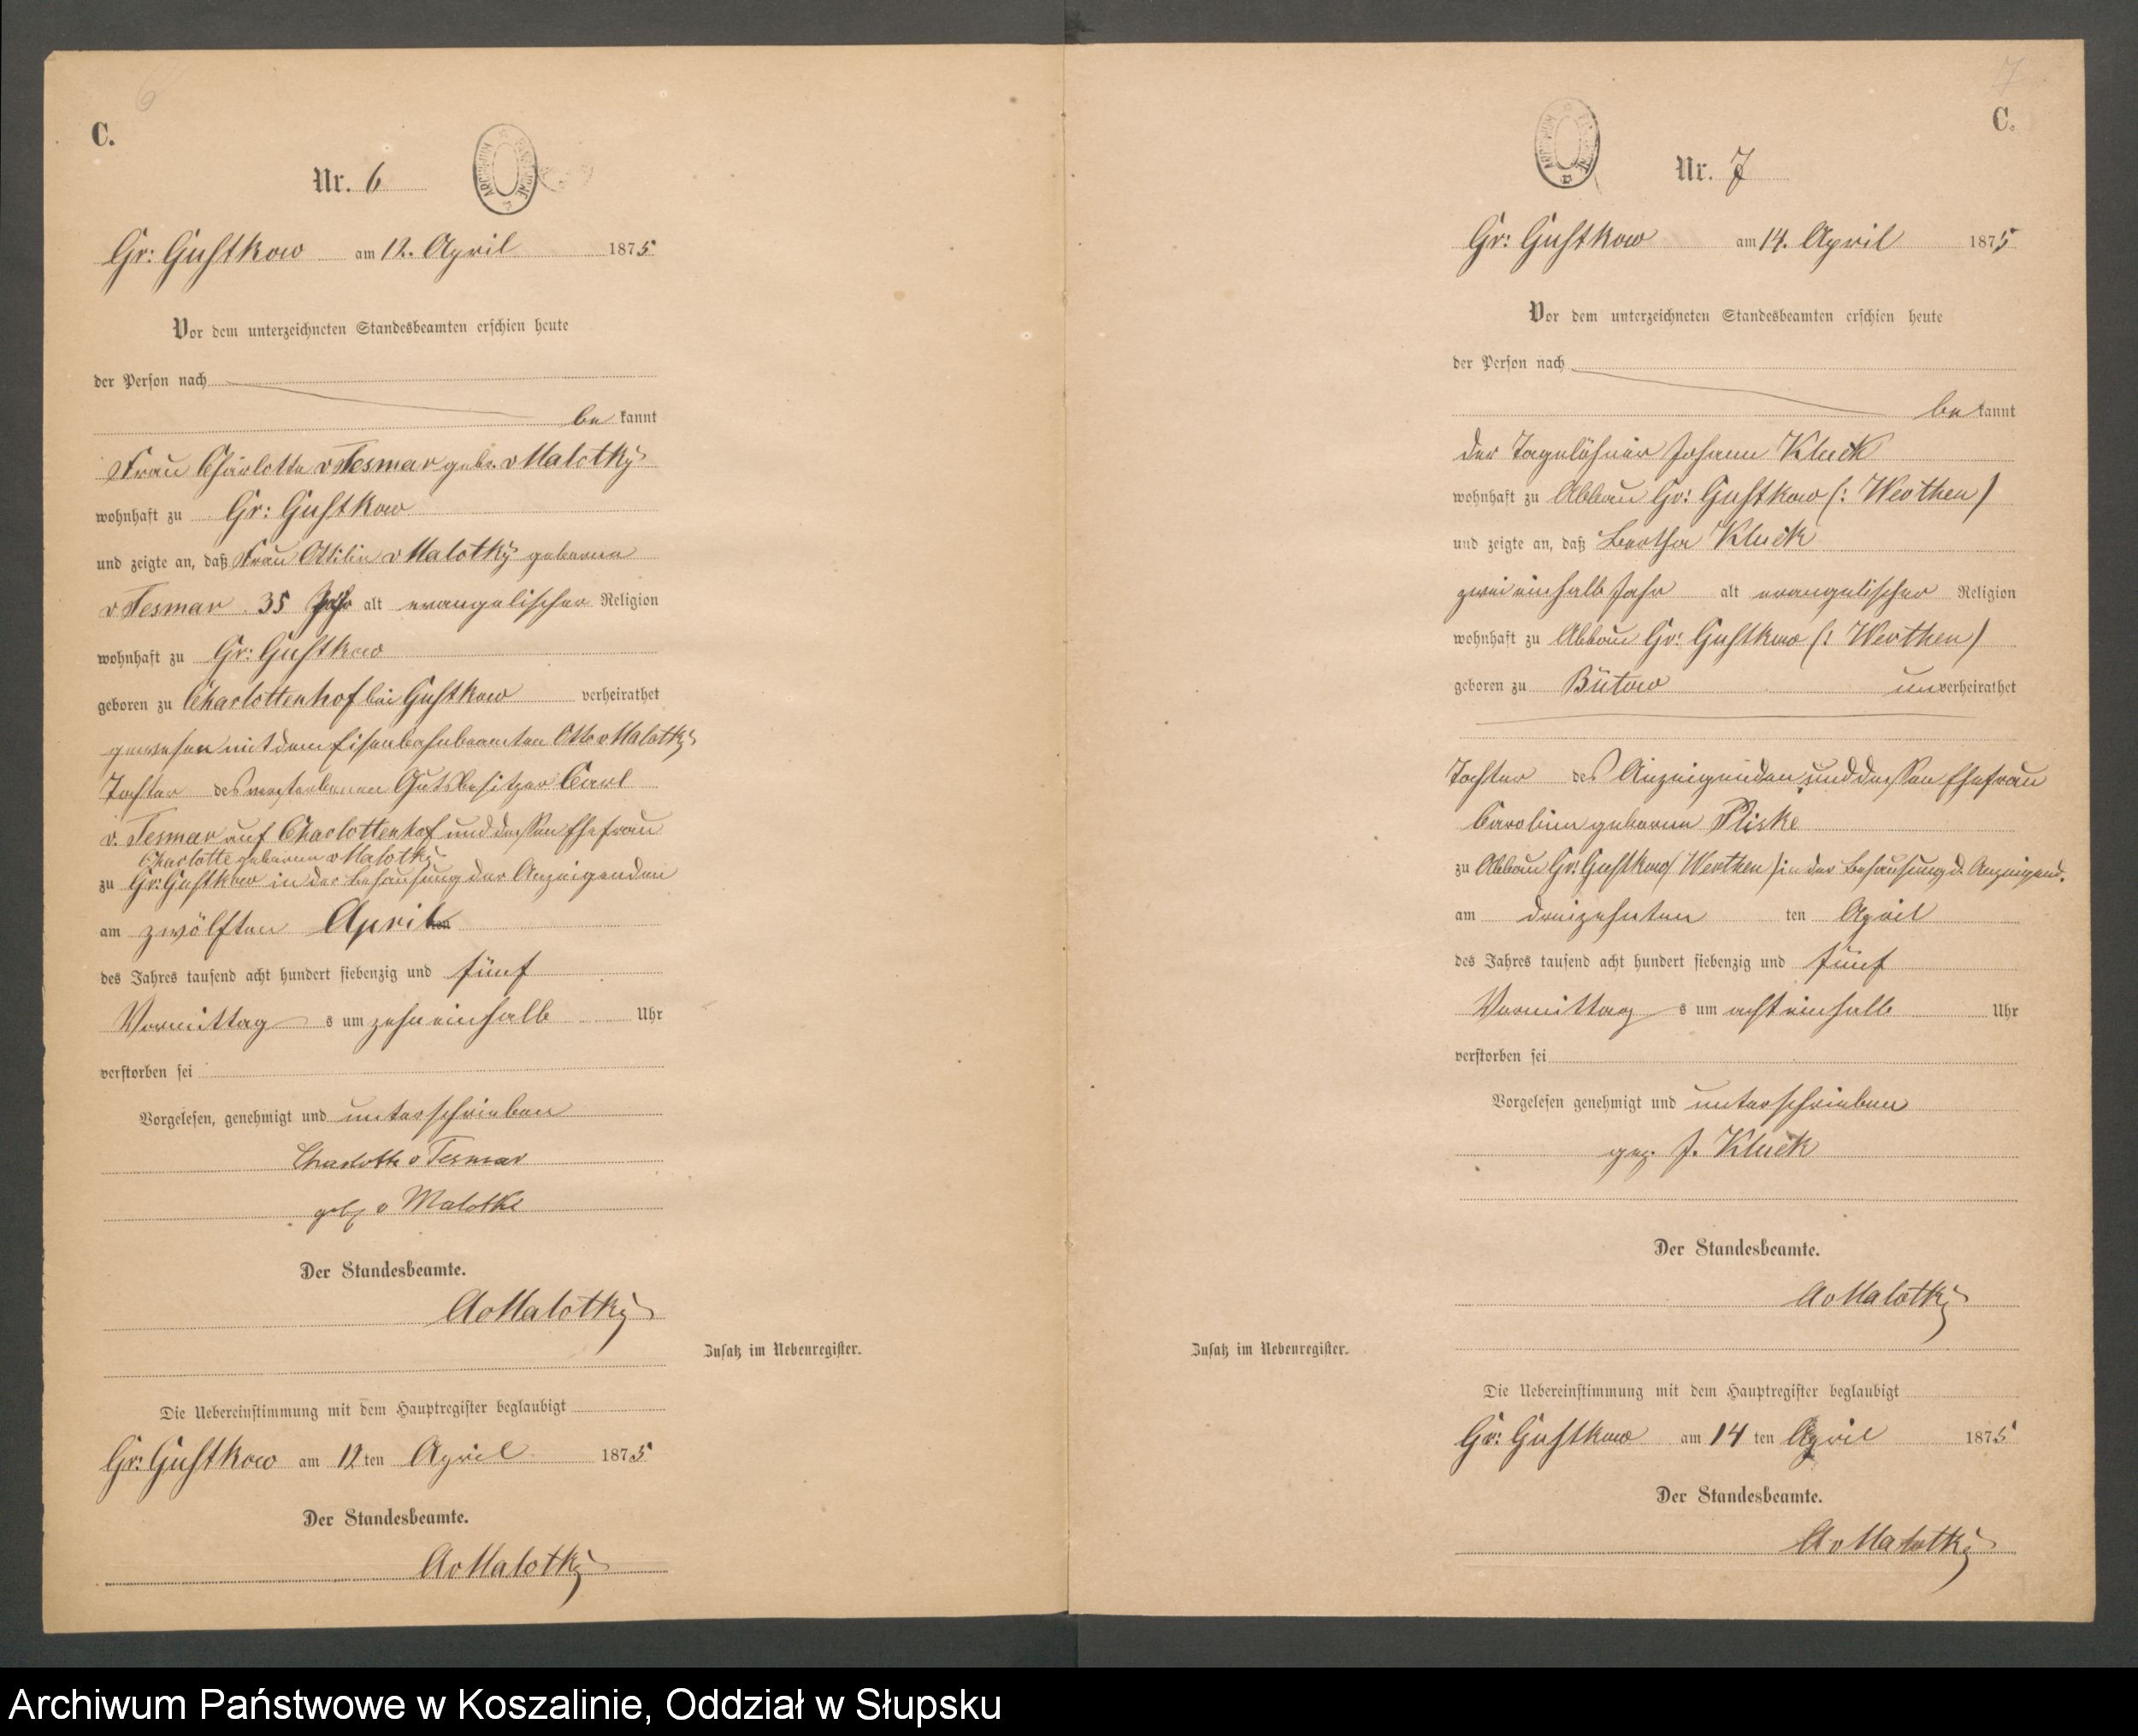 6
C.
Nr. 6
Gr: Gustkow am 12. April 1875
Vor dem unterzeichneten Standesbeamten erschien heute
der Person nach
be kannt
Frau Charlotte v Tesmar geb. v Malotky
wohnhaft zu Gr: Gustkow
und zeigte an, daß Frau Ottilie v Malotky geborene
v Tesmar 35 Jahr alt evangelischer Religion
wohnhaft zu Gr: Gustkow
geboren zu Charlottenhof bei Gustkow verheirathet
gewesen mit dem Eisenbahnbeamten Otto v Malotky
Tochter des verstorbenen Gutsbesitzer Carl
v. Tesmar auf Charlottenhof und dessen Ehefrau
Charlotte geborene v Malotky
zu Gr: Gustkow in der Behausung der Anzeigenden
am zwölften April ten
des Jahres tausend acht hundert siebenzig und fünf
Vormittag s um zehn einhalb Uhr
verstorben sei
Vorgelesen, genehmigt und unterschrieben
Charlotte v Tesmar
geb. v Malotki
Der Standesbeamte.
A v Malotky
Zusatz im Nebenregister.
Die Uebereinstimmung mit dem Hauptregister beglaubigt
Gr: Gustkow am 12 ten April 1875
Der Standesbeamte.
A v Malotky
7
C.
Nr. 7
Gr: Gustkow am 14. April 1875
Vor dem unterzeichneten Standesbeamten erschien heute
der Person nach
be kannt
der Tagelöhner Johann Kluck
wohnhaft zu Abbau Gr: Gustkow (: Werthen)
und zeigte an, daß Bertha Kluck
zwei einhalb Jahr alt evangelischer Religion
wohnhaft zu Abbau Gr: Gustkow (: Werthen)
geboren zu Bütow unverheirathet
Tochter des Anzeigenden und dessen Ehefrau
Caroline geborene Pliske
zu Abbau Gr: Gustkow (Werthen) in der Behausung d. Anzeigend.
am dreizehnten ten April
des Jahres tausend acht hundert siebenzig und fünf
Vormittag s um acht einhalb Uhr
verstorben sei
Vorgelesen genehmigt und unterschrieben
gez. J. Kluck
Der Standesbeamte.
A v Malotky
Zusatz im Nebenregister.
Die Uebereinstimmung mit dem Hauptregister beglaubigt
Gr: Gustkow am 14 ten April 1875
Der Standesbeamte.
A v Malotky
Archiwum Państwowe w Koszalinie, Oddział w Słupsku